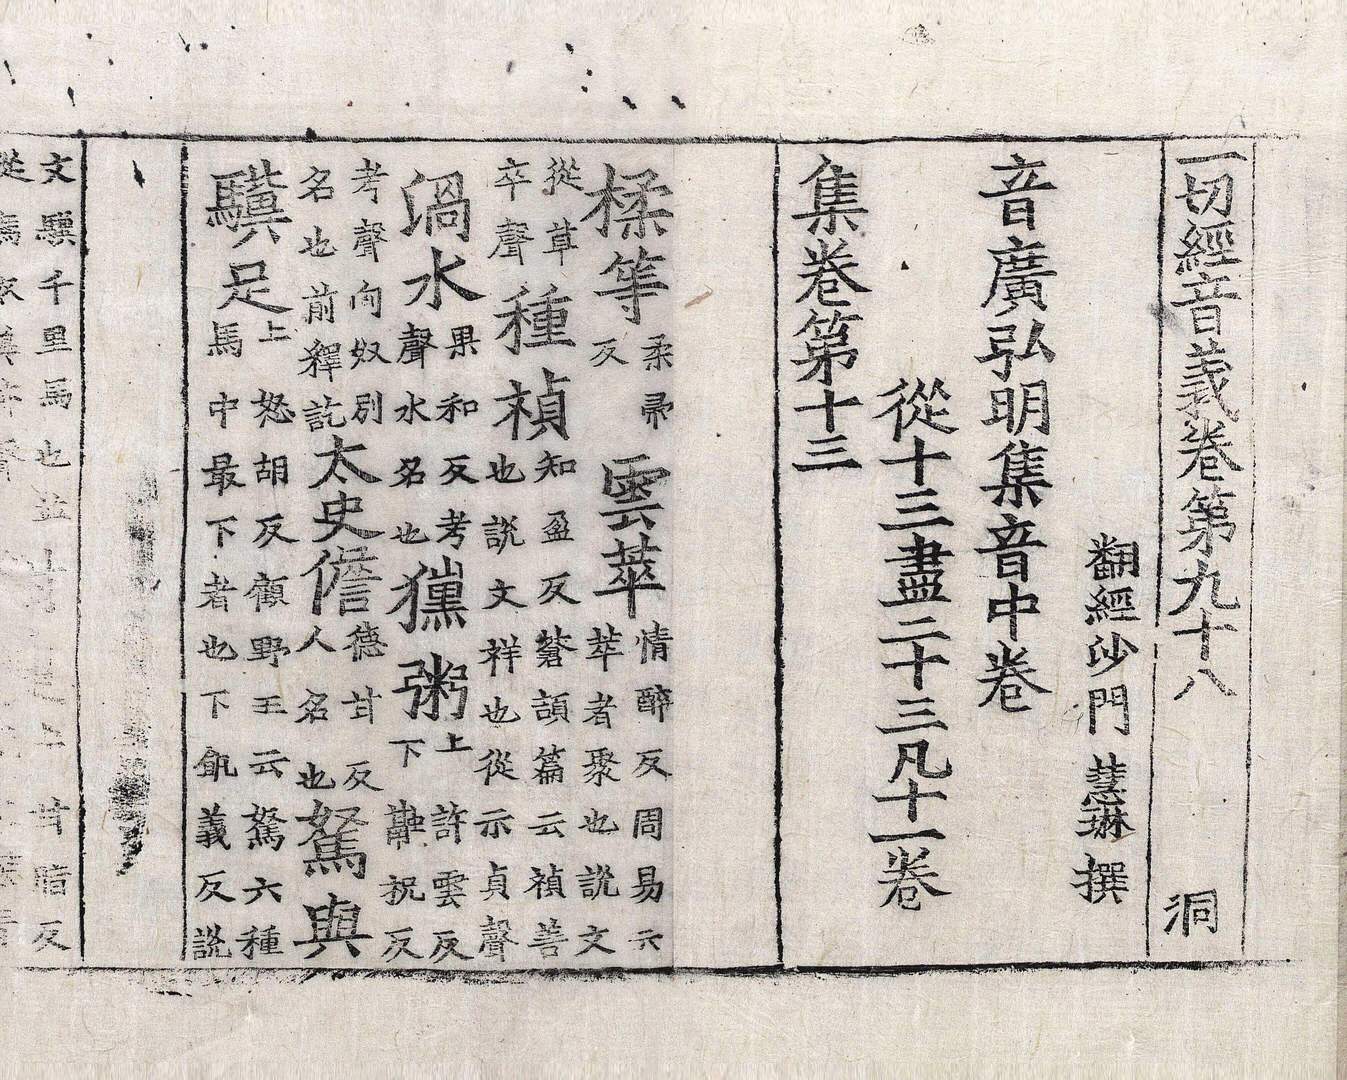 一切經音義卷第九十八 洞
翻經沙門 慧琳 撰
音廣弘明集音中卷
從十三盡二十三凡十一卷
集卷第十三
楺等柔帚反雲萃情醉反周易云萃者聚也說文
從草卒聲種楨知盈反蒼頡篇云禎善也說文祥也從示貞聲
渦水果和反考聲水名也獯粥上許雲反下融祝反
考聲向奴別名也前釋訖太史儋德甘反人名也駑與
驥足上怒胡反顧野王云駑六種馬中最下者也下飢義反說
文驥千里馬也並